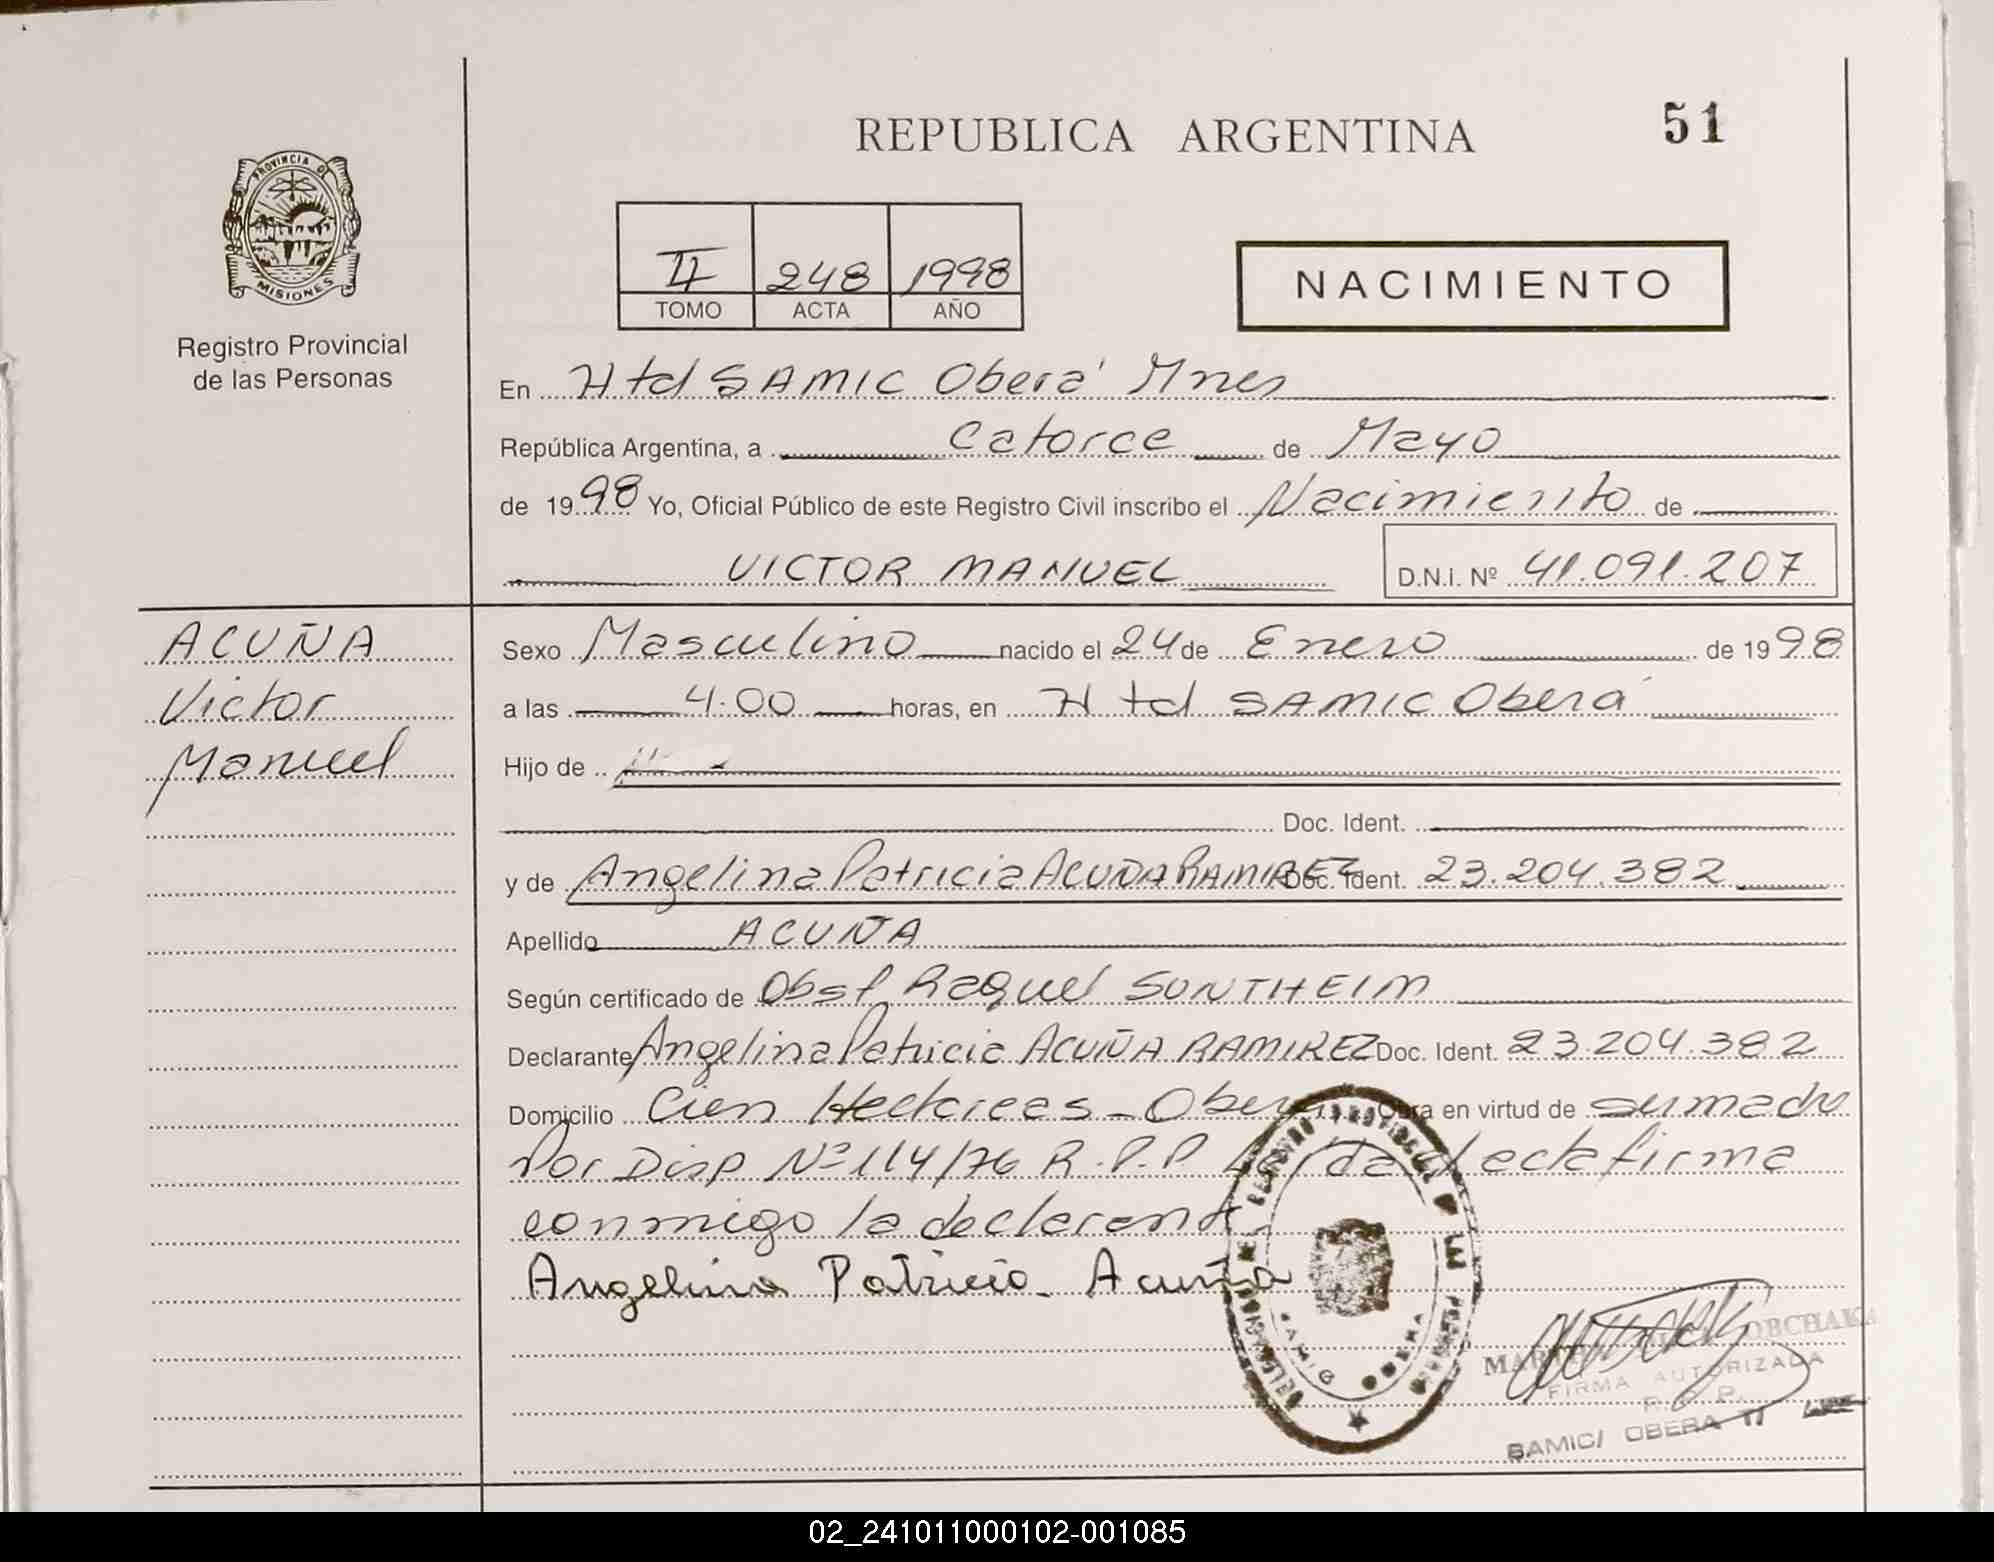 REPUBLICA ARGENTINA
51
PROVINCIA DE
MISIONES
Registro Provincial
de las Personas
II 248 1998
TOMO ACTA AÑO
NACIMIENTO
En Htal SAMIC Oberá Mnes
República Argentina, a Catorce de Mayo
de 1998 Yo, Oficial Público de este Registro Civil inscribo el Nacimiento de
VICTOR MANUEL D.N.i. Nº 41.091.207
ACUÑA
Victor
Manuel
Sexo Masculino nacido el 24 de Enero de 1998
a las 4.00 horas, en Htal SAMIC Oberá
Hijo de
Doc. Ident.
y de Angelina Patricia ACUÑA RAMIREZ Doc. Ident. 23.204.382
Apellido ACUÑA
Según certificado de Obst Raquel SONTHEIM
Declarante Angelina Patricia ACUÑA RAMIREZ Doc. Ident. 23.204.382
Domicilio Cien Hectareas - Oberá Obra en virtud de su madre
Por Disp Nº 114/76 R.P.P Leída el acta firma
conmigo la declarant
Angelina Patricia Acuña
SAMIC OBERA
FIRMA AUTORIZADA
R. P. P.
SAMIC/ OBERA
02_241011000102-001085